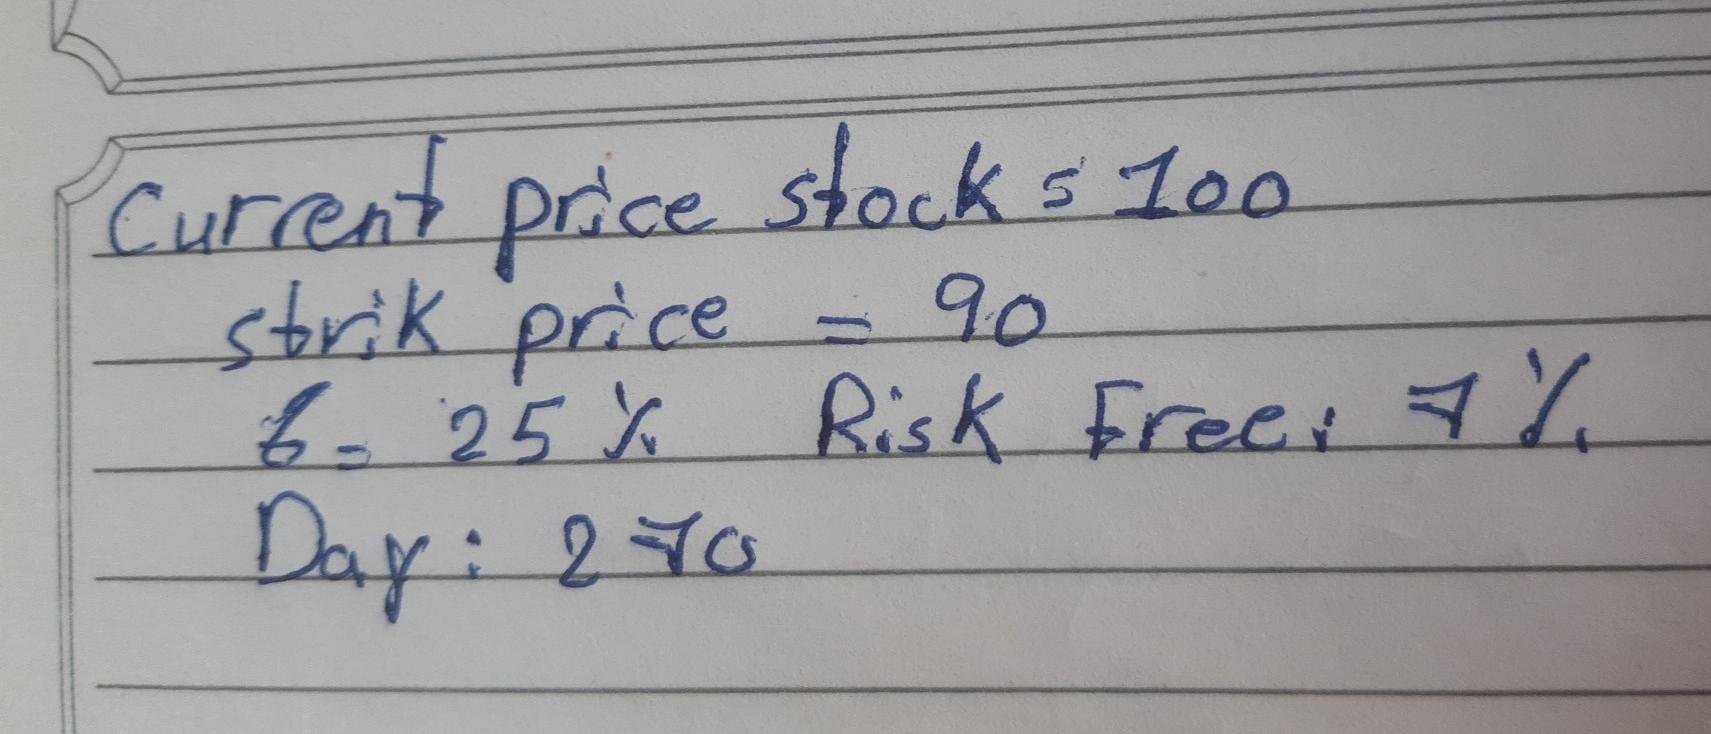 Current price stock = 100
strik price = 90
6 = 25 % Risk Free: 7 %
Day: 270